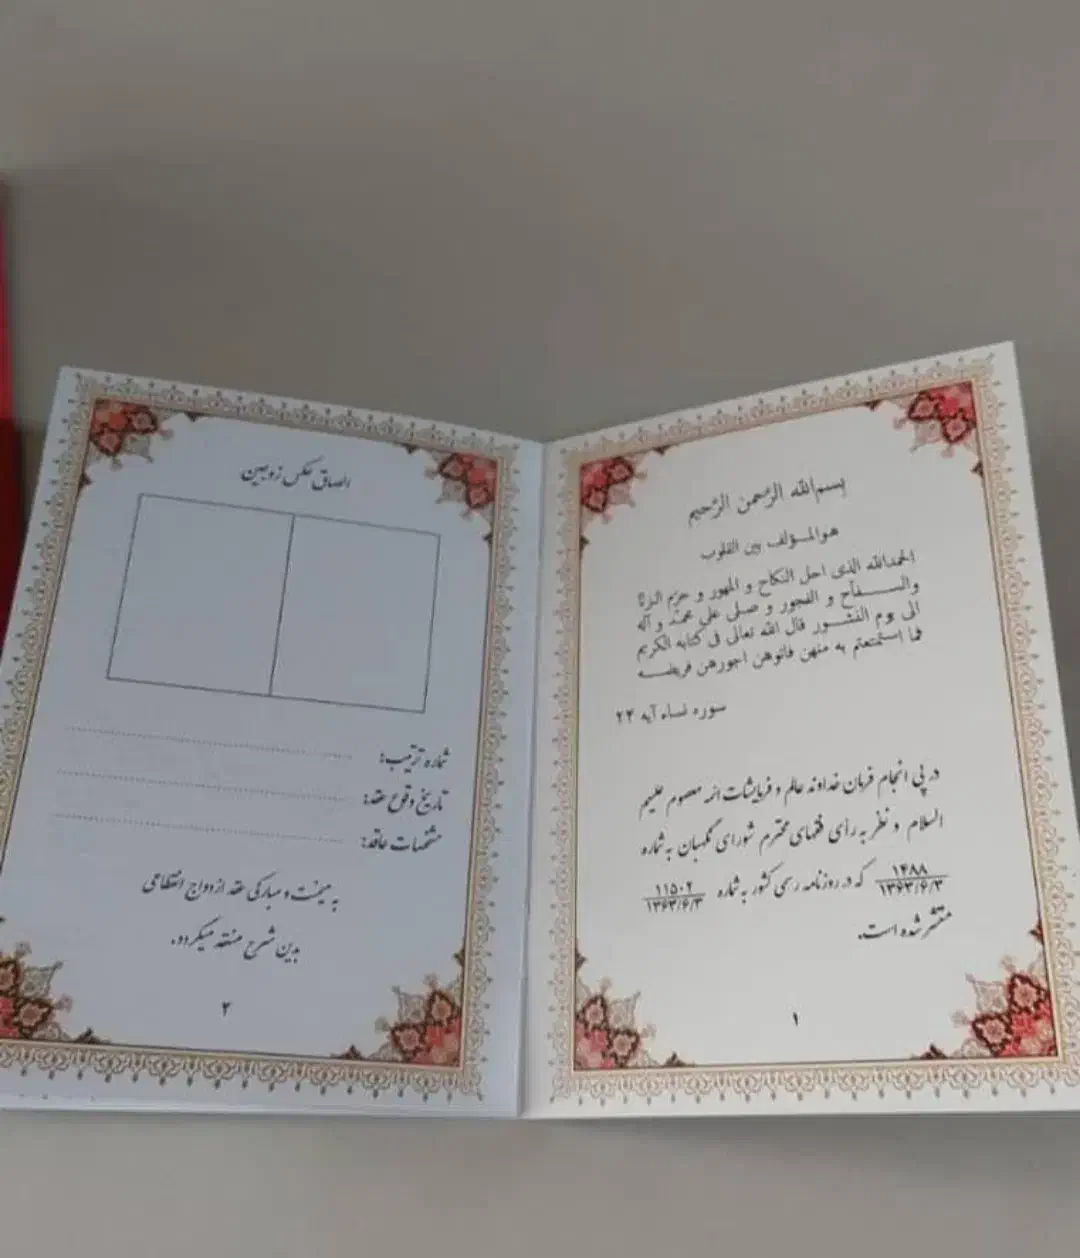 بسم الله الرحمن الرحیم
هوالمؤلف بین القلوب
الحمدالله الذی احل النکاح و المهور و حرّم الزنا
والسفاح و الفجور و صلی علی محمد و آله
الی یوم النشور قال الله تعالی فی کتابه الکریم
فما استمتعتم به منهن فاتوهن اجورهن فریضه
سوره نساء آیه ۲۴
در پی انجام فرمان خداوند عالم و فرمایشات ائمه معصوم علیهم
السلام و نظر به رأی فقهای محترم شورای نگهبان به شماره
۱۴۸۸
۱۳۶۳/۶/۳
که در روزنامه رسمی کشور به شماره
۱۱۵۰۲
۱۳۶۳/۶/۳
منتشر شده است.
۱
الصاق عکس زوجین
شماره ترتیب:
تاریخ وقوع عقد:
مشخصات عاقد:
به میمنت و مبارکی عقد ازدواج انقطاعی
بدین شرح منعقد میگردد.
۲